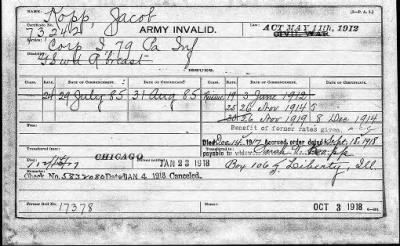 NAME: Kopp, Jacob (3-P. A. 1.)
Certificate No. ARMY INVALID. Law: ACT MAY 11th, 1912
73242 CIVIL WAR
Corp I 79 Pa Inf
G.S.Wd breast
ISSUES.
Class. Rate. Date of Commencement. Date of Certificate. Class. Rate. Date of Commencement. Date of Certificate.
24 29 July 85 31 Aug 85 19 3 June 1912
25 26 Nov 1914
30 26 Nov 1919 8 Dec 1914
Benefit of former rates given.
Died Dec 14, 1917 Accrued order dated Sept. 18, 1918
payable to widow Sarah Kopp
Transferred CHICAGO JAN 23 1918 Box 106 Liberty, Ill.
Check No. 5832080 Dated JAN 4 1918 Canceled.
17378 OCT 3 1918